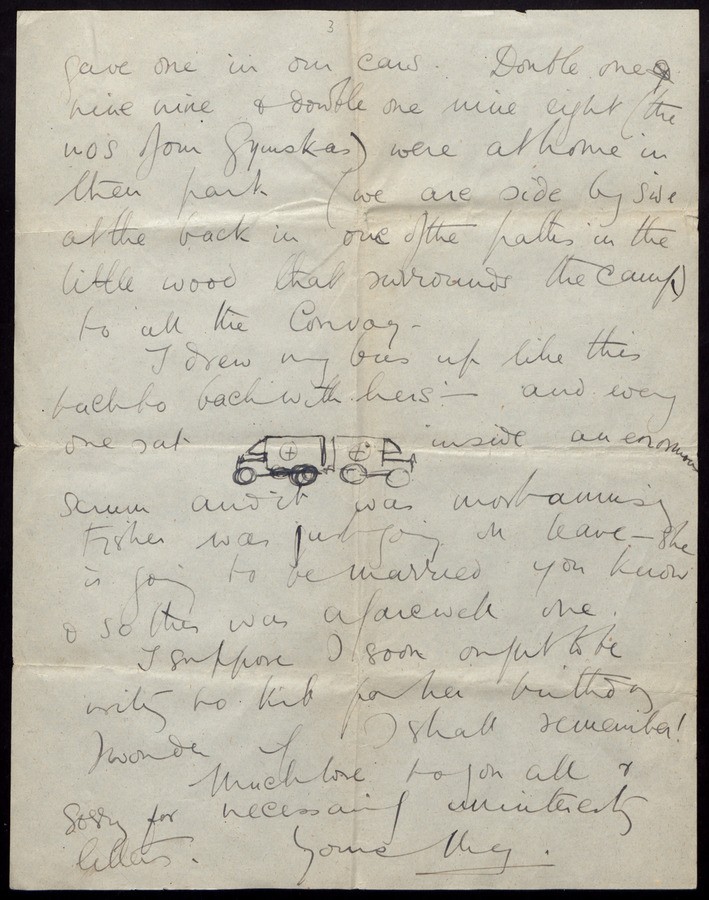 3
gave one in our cars. Double one
nine nine & double one nine eight (the
nos of our Gymskas) were at home in
their park (we are side by side
at the back in one of the paths in the
little wood that surrounds the camp)
to all the Convoy –
I drew my bus up like this
back to back with hers – and every
one sat inside an enormous
scrum and it was most amusing
Fisher was just going on leave – she
is going to be married you know
& so this was a farewell one.
I suppose I soon ought to be
writing to Kit for her birthday
I wonder if I shall remember!
Much love to you all &
Sorry for necessarily uninteresting
letters. Yours